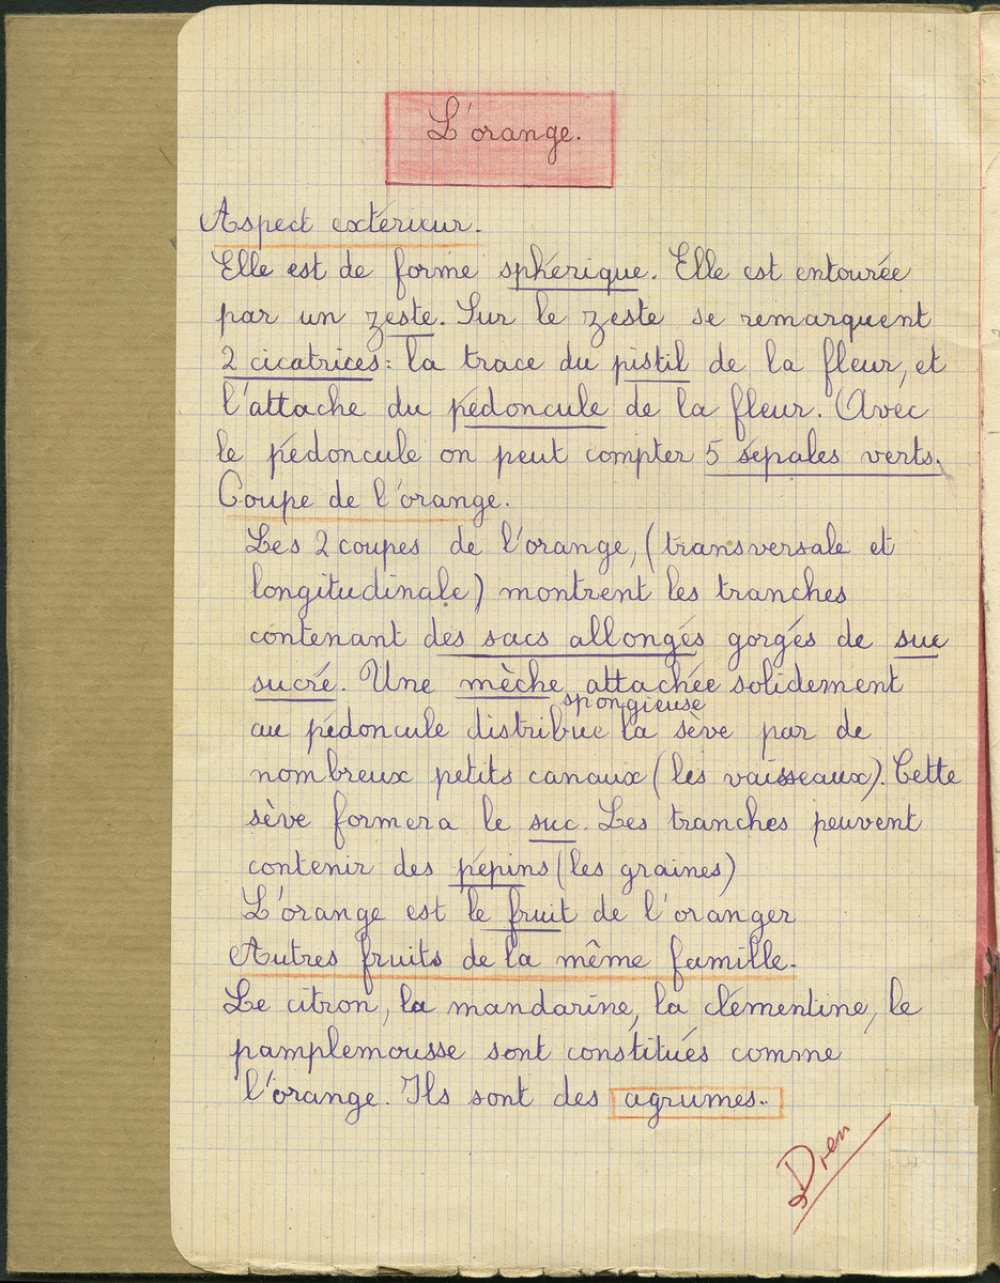 L'orange.
Aspect extérieur.
Elle est de forme sphérique. Elle est entourée
par un zeste. Sur le zeste se remarquent
2 cicatrices : la trace du pistil de la fleur, et
l'attache du pédoncule de la fleur. (Avec
le pédoncule on peut compter 5 sépales verts.
Coupe de l'orange.
Les 2 coupes de l'orange, (transversale et
longitudinale) montrent les tranches
contenant des sacs allongés gorgés de suc
sucré. Une mèche attachée solidement
spongieuse
au pédoncule distribue la sève par de
nombreux petits canaux (les vaisseaux). Cette
sève formera le suc. Les tranches peuvent
contenir des pépins (les graines)
L'orange est le fruit de l'oranger
Autres fruits de la même famille.
Le citron, la mandarine, la clémentine, le
pamplemousse sont constitués comme
l'orange. Ils sont des agrumes.